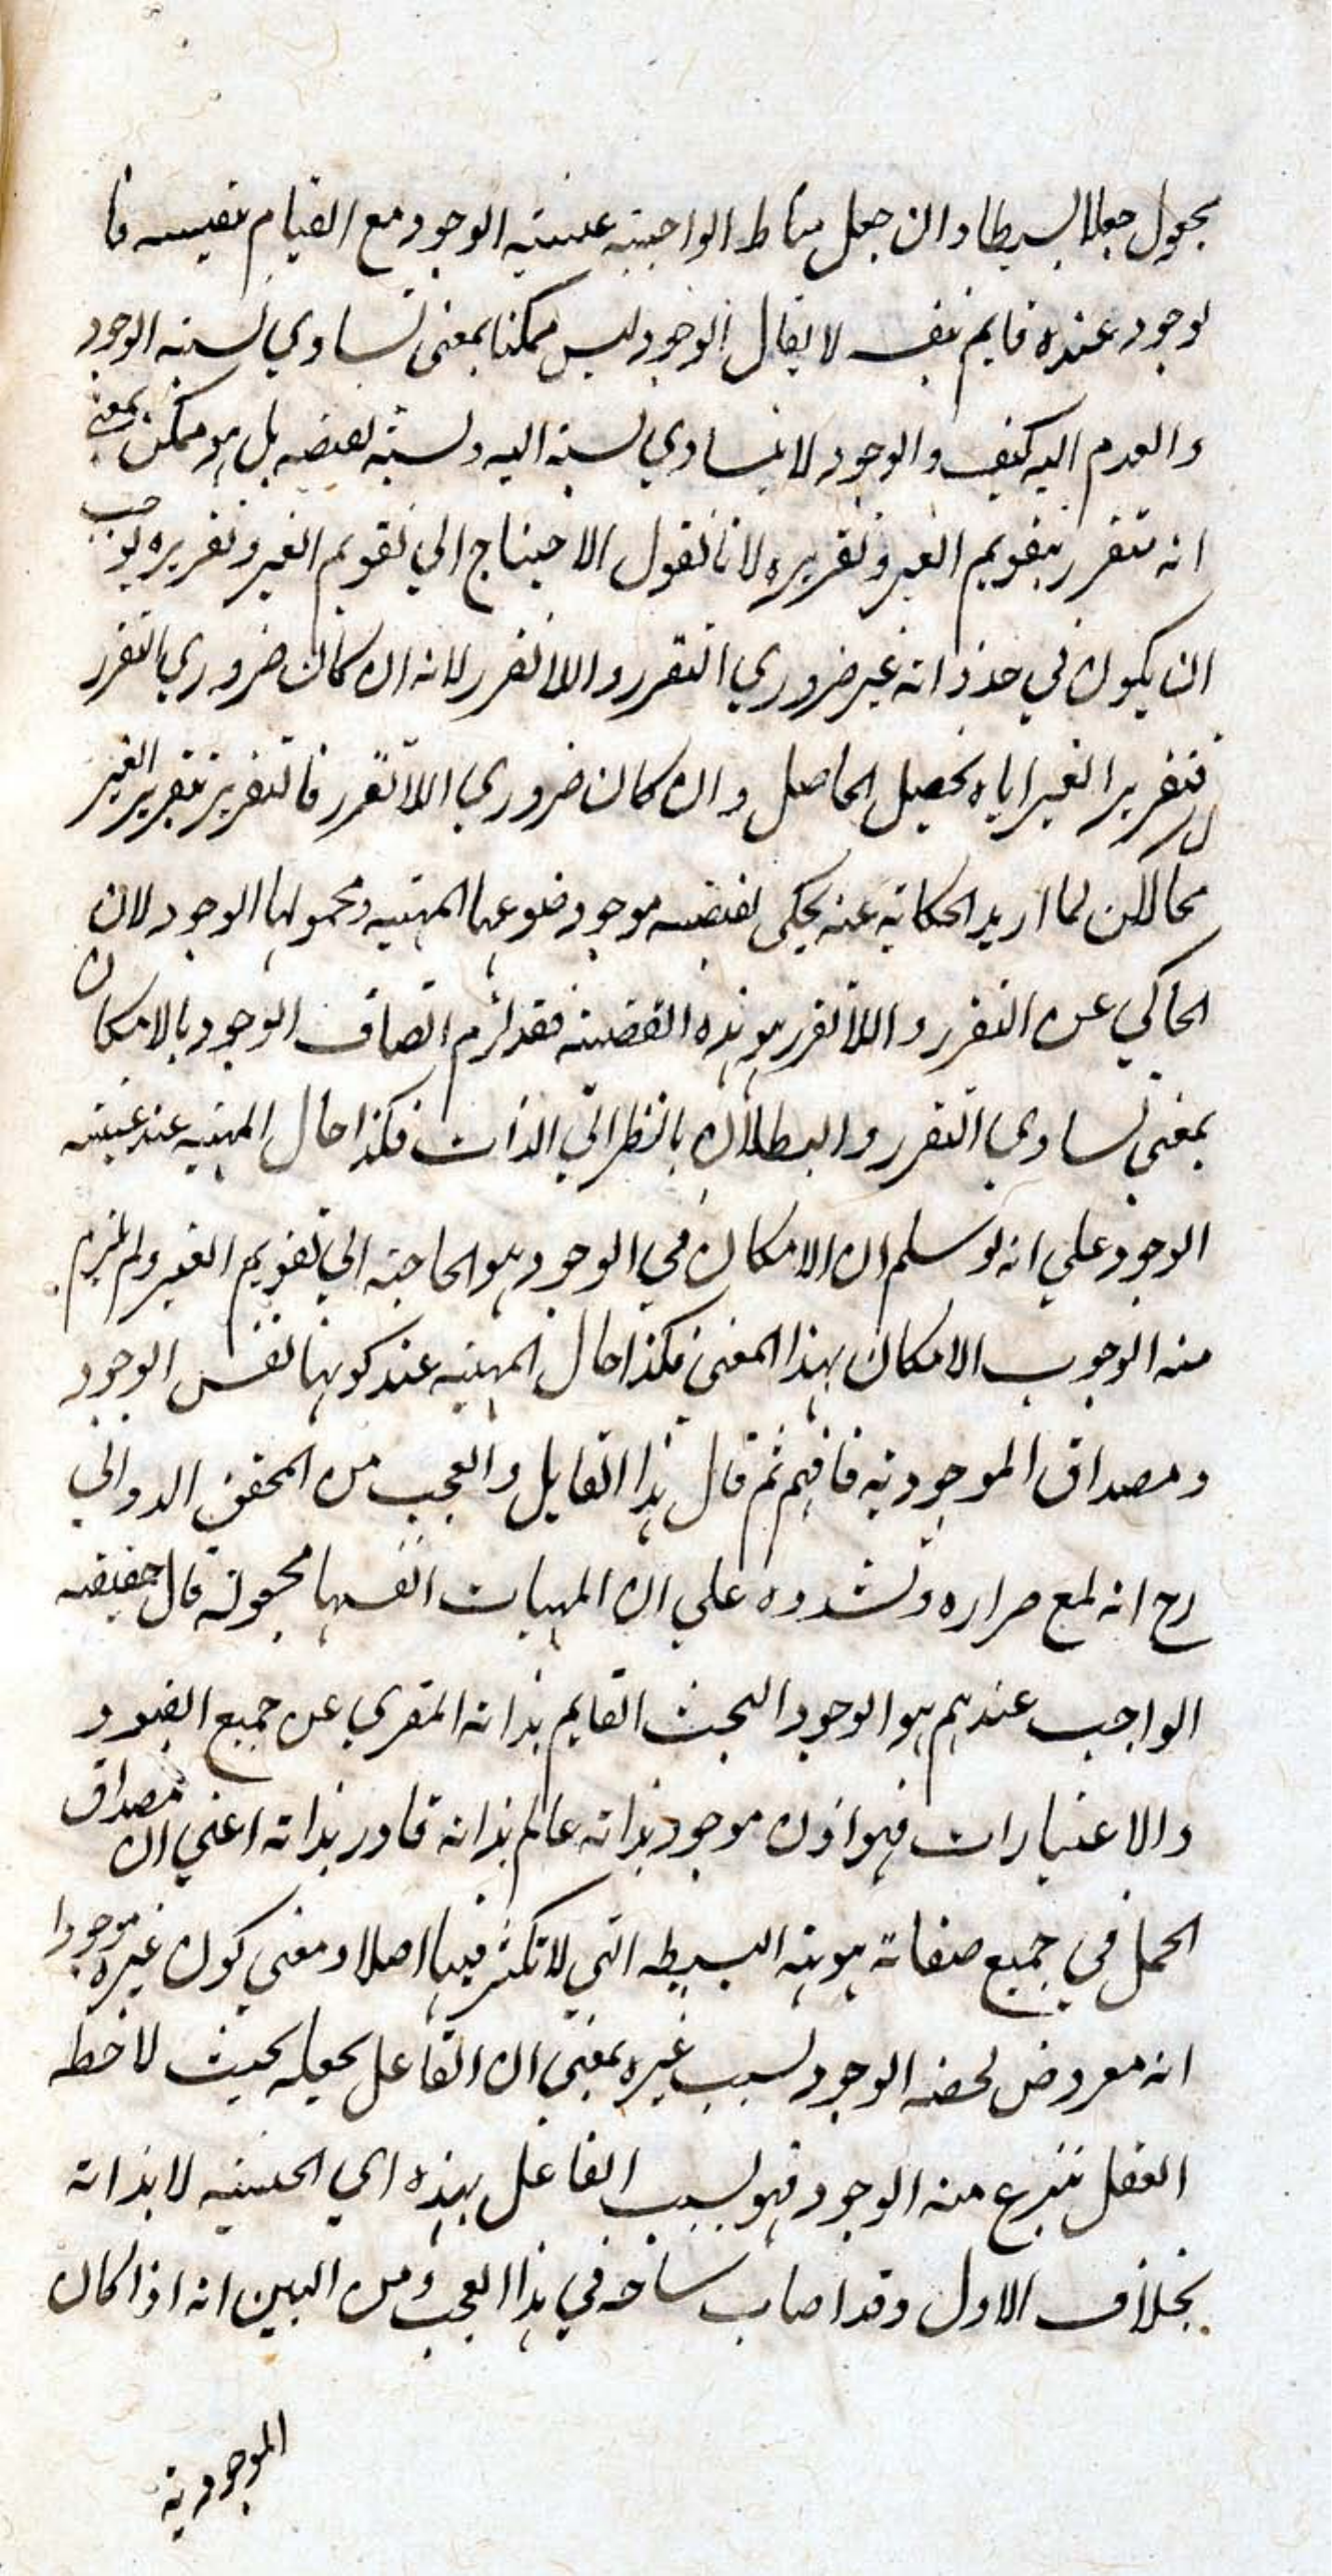 بجعول جعلا بسيطا وان جعل مناط الواجبية عينية الوجود مع القيام بنفسه فا
لوجود عنده قايم بنفسه لا يقال الوجود ليس ممكنا بمعنى تساوي نسبة الوجود
والعدم اليه كيف والوجود لا يتساوي نسبة اليه ونسبة نقيضه بل هو ممكن بمعنى
انه متقرر بتقويم الغير وتقريره لانا نقول الاحتياج الي تقويم الغير وتقريره يوجب
ان يكون في حد ذاته غير ضروري التقرر واللا تقرر لانه ان كان ضروري التقرر
فتقرير الغير اياه تحصيل الحاصل وان كان ضروري اللا تقرر فالتقرير بتقرير الغير
محال لان لما اريد الحكاية عنه يحكى بقضية موجود ضوعها المهية ومحمولها الوجود لان
الحاكي عن التقرر واللا تقرر هو هذه القضية فقد لزم اتصاف الوجود بالامكان
بمعنى تساوي التقرر والبطلان بالنظر الي الذات فكذا حال المهية عند عينية
الوجود علي انه لو سلم ان الامكان في الوجود هو الحاجة الي تقويم الغير ولم يلزم
منه الوجوب الامكان بهذا المعنى فكذا حال المهية عند كونها نفس الوجود
ومصداق الموجودية فافهم ثم قال هذا القايل والعجب من المحقق الدواني
رح انه لمع صراره وتشدده علي ان المهيات انفسها مجعولة قال حقيقة
الواجب عندهم هو الوجود البحث القايم بذاته المقري عن جميع القيود
والاعتبارات فهو اذن موجود بذاته عالم بذاته قادر بذاته اعني ان مصداق
الحمل في جميع صفاته هويته البسيطه التي لا تكثر فيها اصلا ومعني كون غيره موجودا
انه معروض لحصة الوجود بسبب غيره بمعنى ان الفاعل يجعله بحيث لاحظه
العقل ينتزع منه الوجود فهو بسبب الفاعل بهذه اي الحيثيه لا بذاته
بخلاف الاول وقد اصاب سانحه في هذا العجب ومن البين انه اذا كان
الموجودية